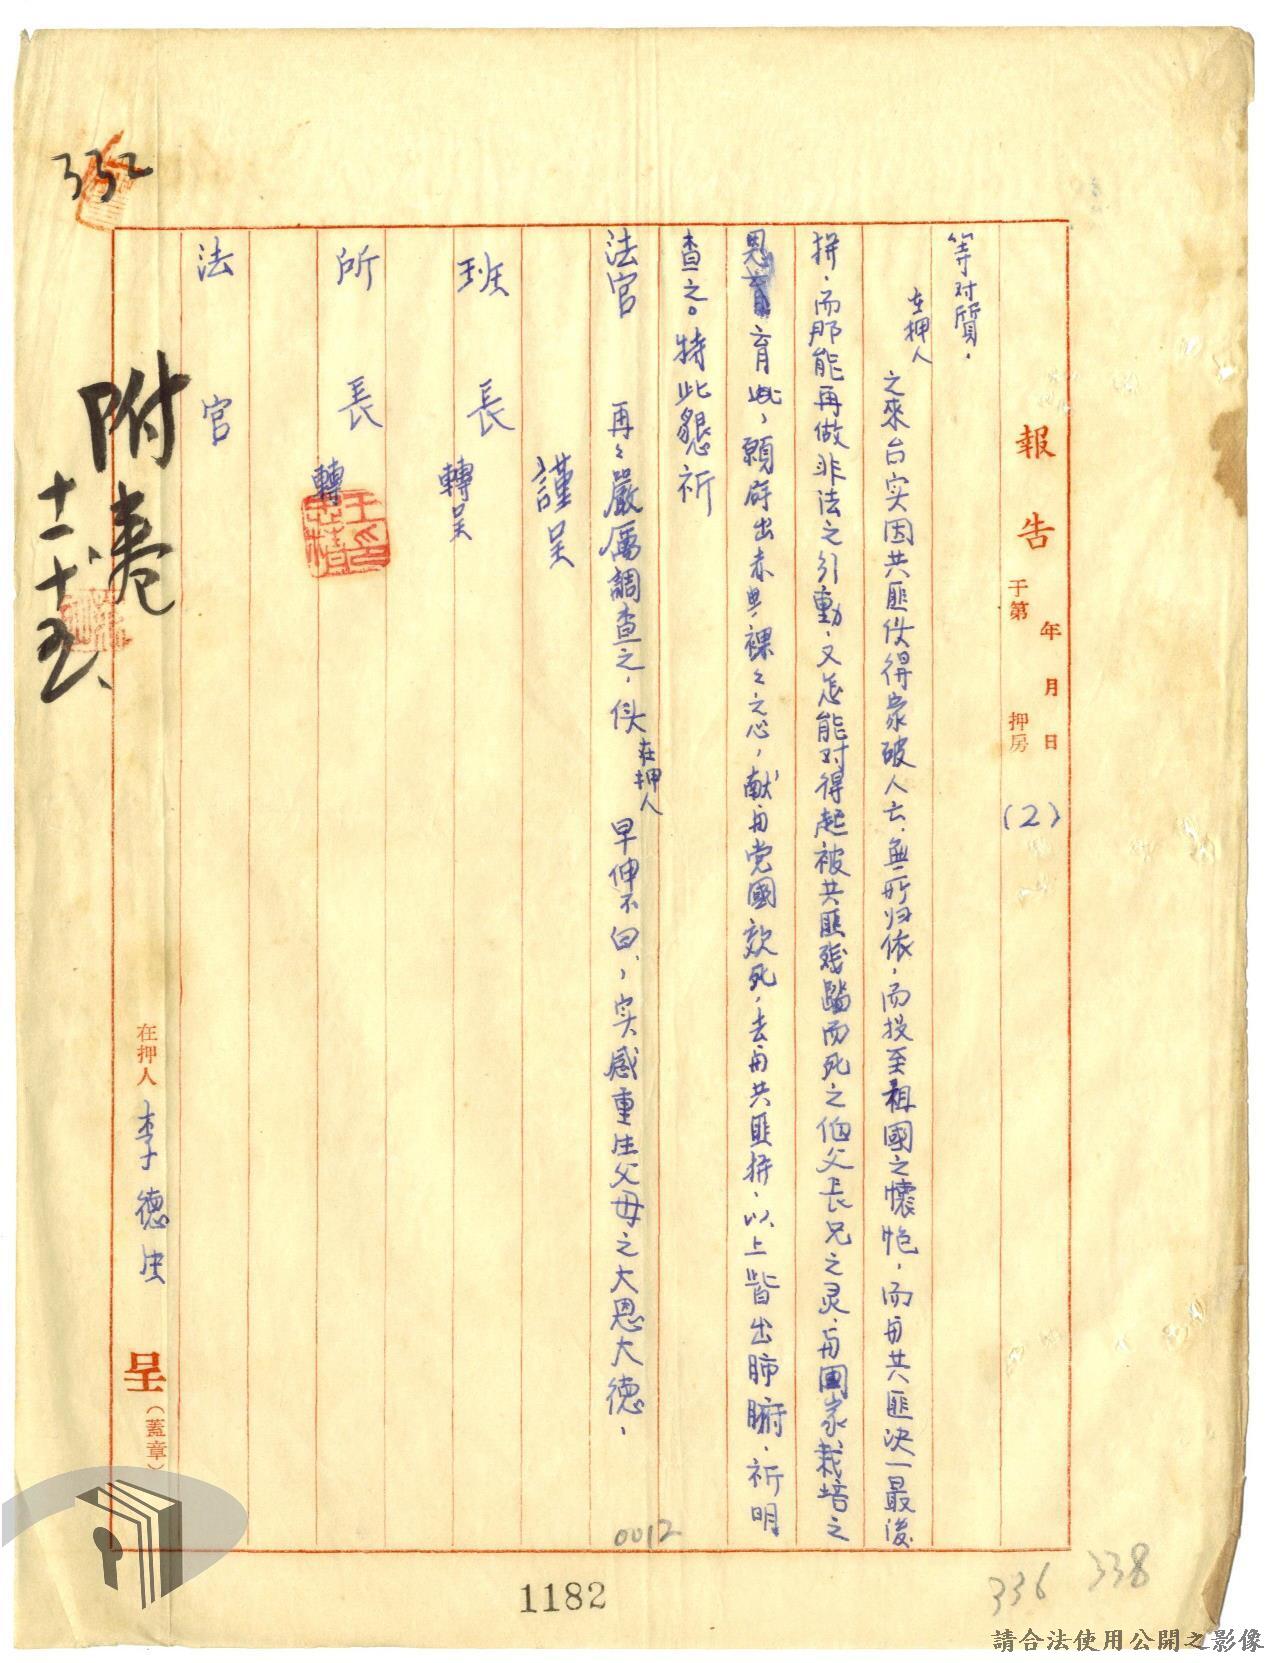 報告
年 月 日
于第 押房
(2)
等对質.
在押人之來台实因共匪使得家破人亡.無所归依.而投至祖國之懷抱.而与共匪决一最後
拼.而那能再做非法之引動.又怎能对得起被共匪残踏而死之伯父長兄之灵.与國家栽培之
恩育此,願辟出赤與裸々之心,献与党國效死.去与共匪拼.以上皆出肺腑.祈明
查之。特此懇祈
法官 再々嚴厲調查之.使在押人早伸不白,实感重生父母之大恩大德.
謹呈
班長轉呈
所長轉
法官
在押人 李德生 呈(蓋章)
附卷
十一、十五、
332
0012
1182
336
338
請合法使用公開之影像